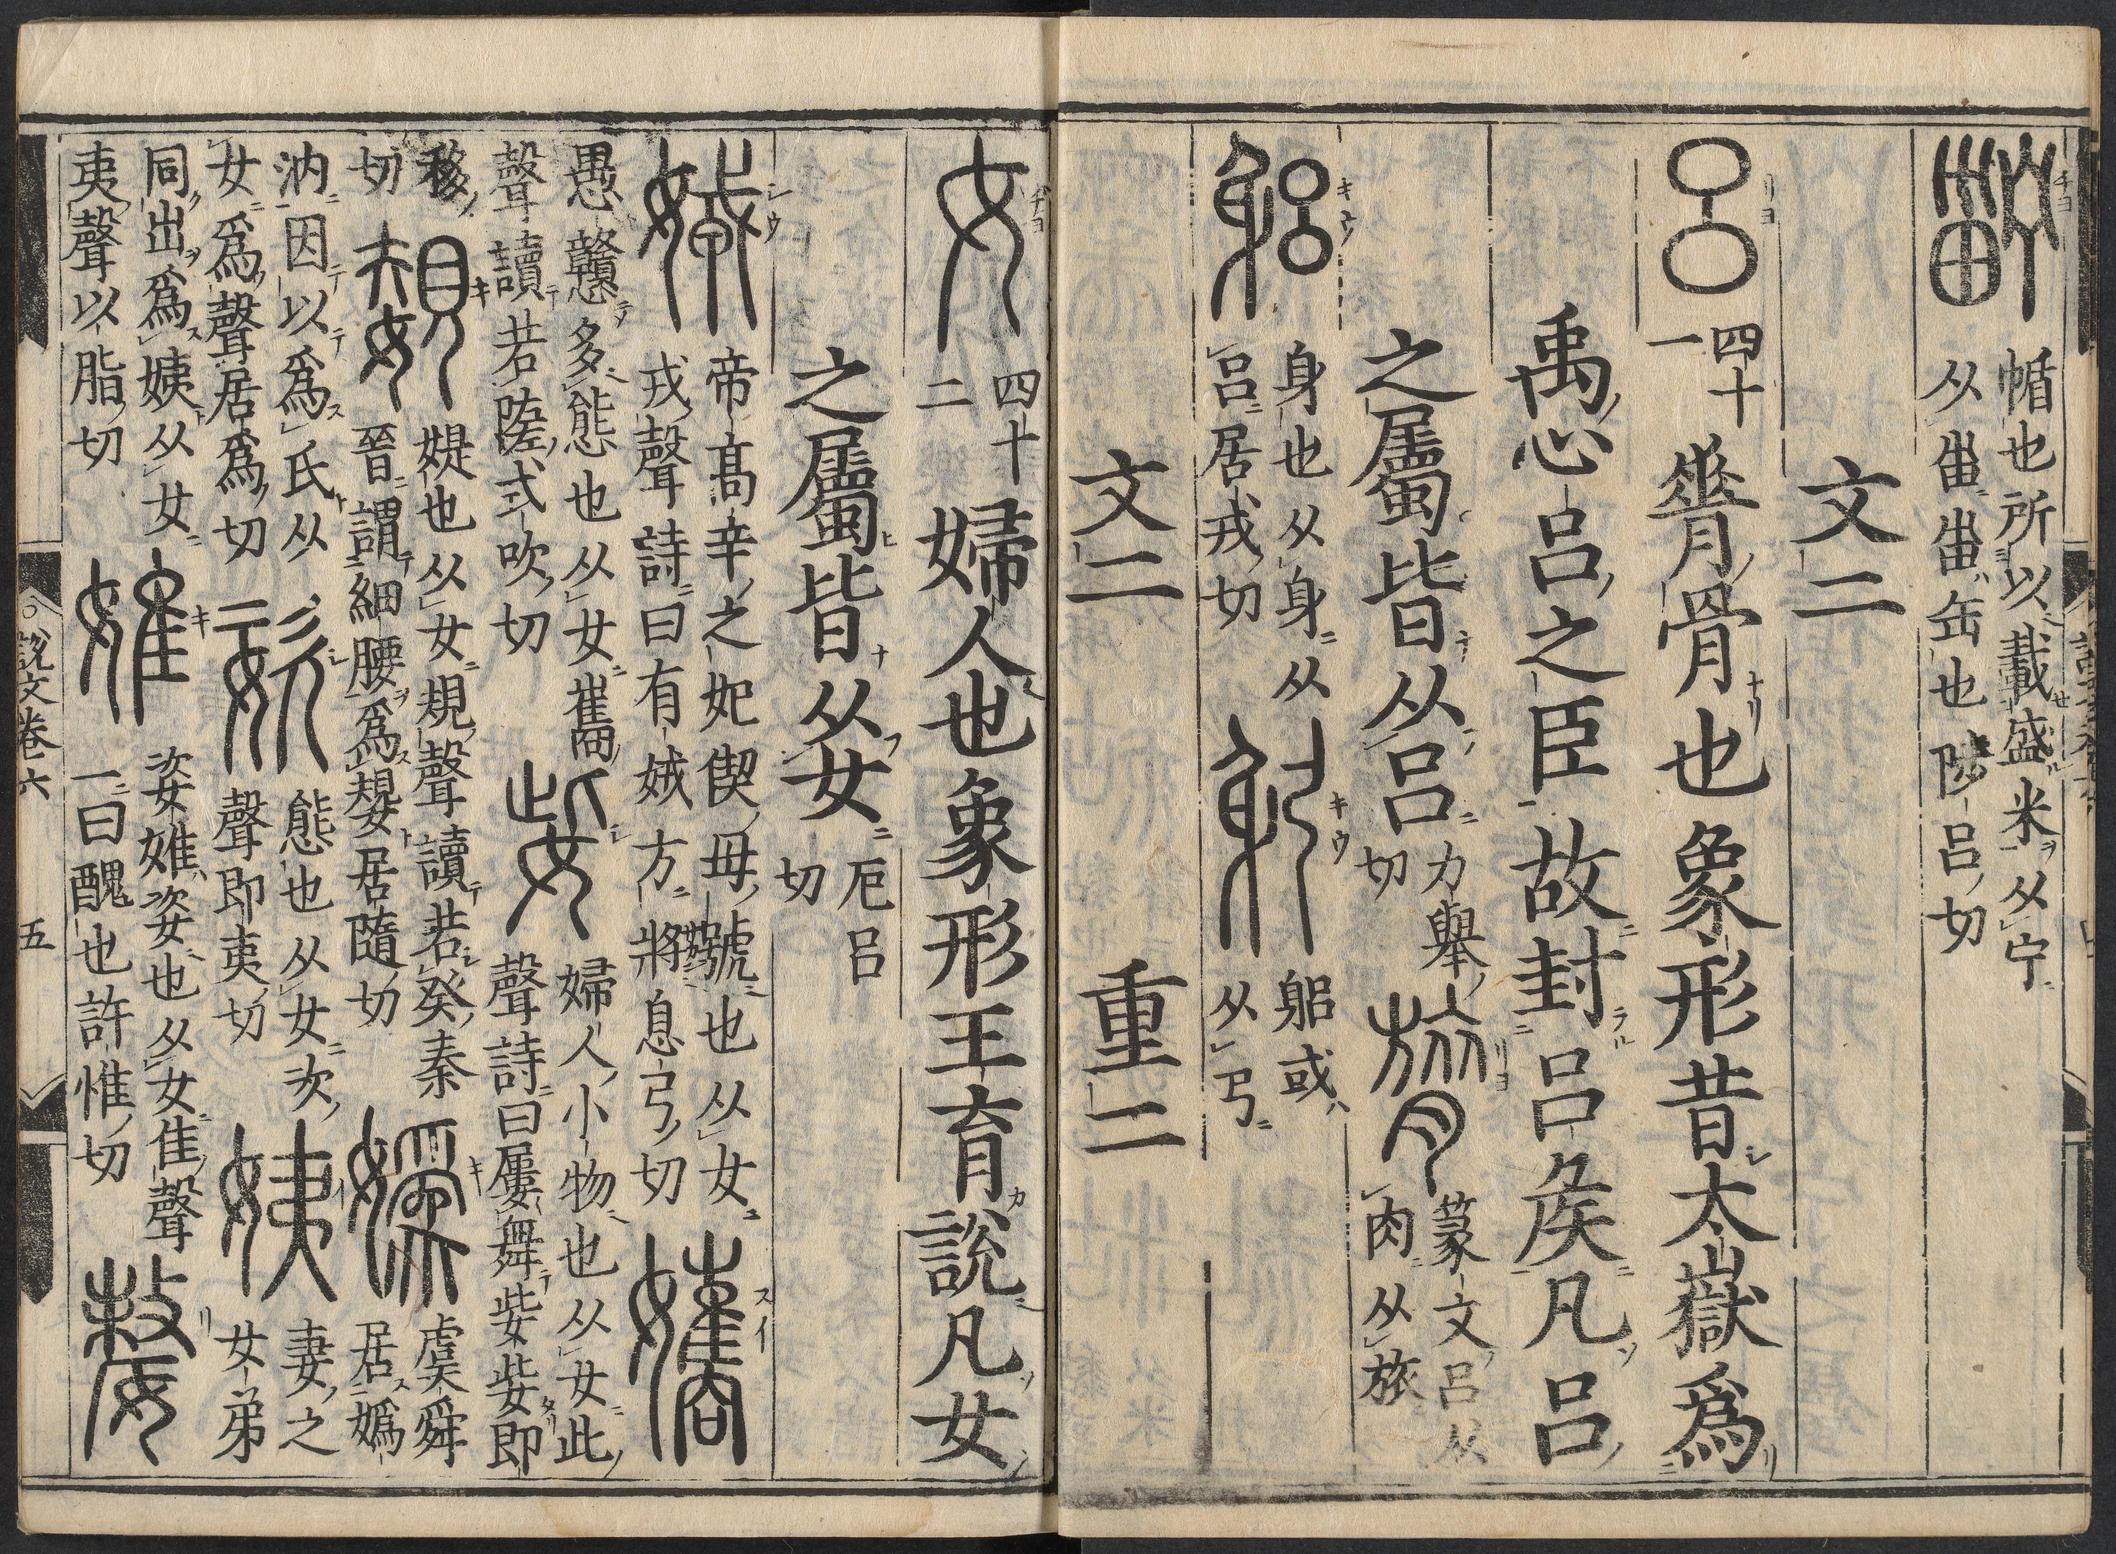 帾也所以載盛米从宁从甾甾缶也陟吕切
文二
呂四十一脊骨也象形昔太嶽爲
禹心呂之臣故封呂矦凡呂
之屬皆从呂力舉切膂篆文呂从肉从旅
躳身也从身从呂居戎切躬躳或从弓
文二　重二
女四十二婦人也象形王育說凡女
之屬皆从女尼吕切
娀帝高辛之妃偰母號也从女戎聲詩曰有娀方將息弓切孈
愚戇多態也从女巂聲讀若陸式吹切姕婦人小物也从女此聲詩曰屢舞姕姕即
移切嫢媞也从女規聲讀若癸秦晉謂細腰爲嫢居隨切嬀虞舜居嬀
汭因以爲氏从女爲聲居爲切姿態也从女次聲即夷切姨妻之女弟
同出爲姨从女夷聲以脂切婎姿婎姿也从女隹聲一曰醜也許惟切嫠
說文卷六　五